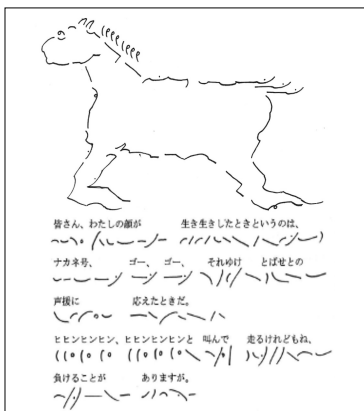 皆さん、わたしの顔が　生き生きしたときというのは、
ナカネ号、　ゴー、　ゴー、　それゆけ　とばせとの
声援に　応えたときだ。
ヒヒンヒンヒン、ヒヒンヒンヒンと　叫んで　走るけれどもね、
負けることが　ありますが。